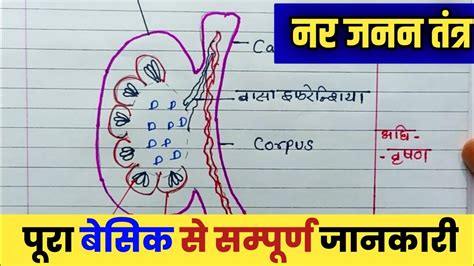 नर जनन तंत्र
Ca
वासा इफरेन्शिया
Corpus
अधि-
- वृषण
D D
D D D
D D
D D D
D D
पूरा बेसिक से सम्पूर्ण जानकारी